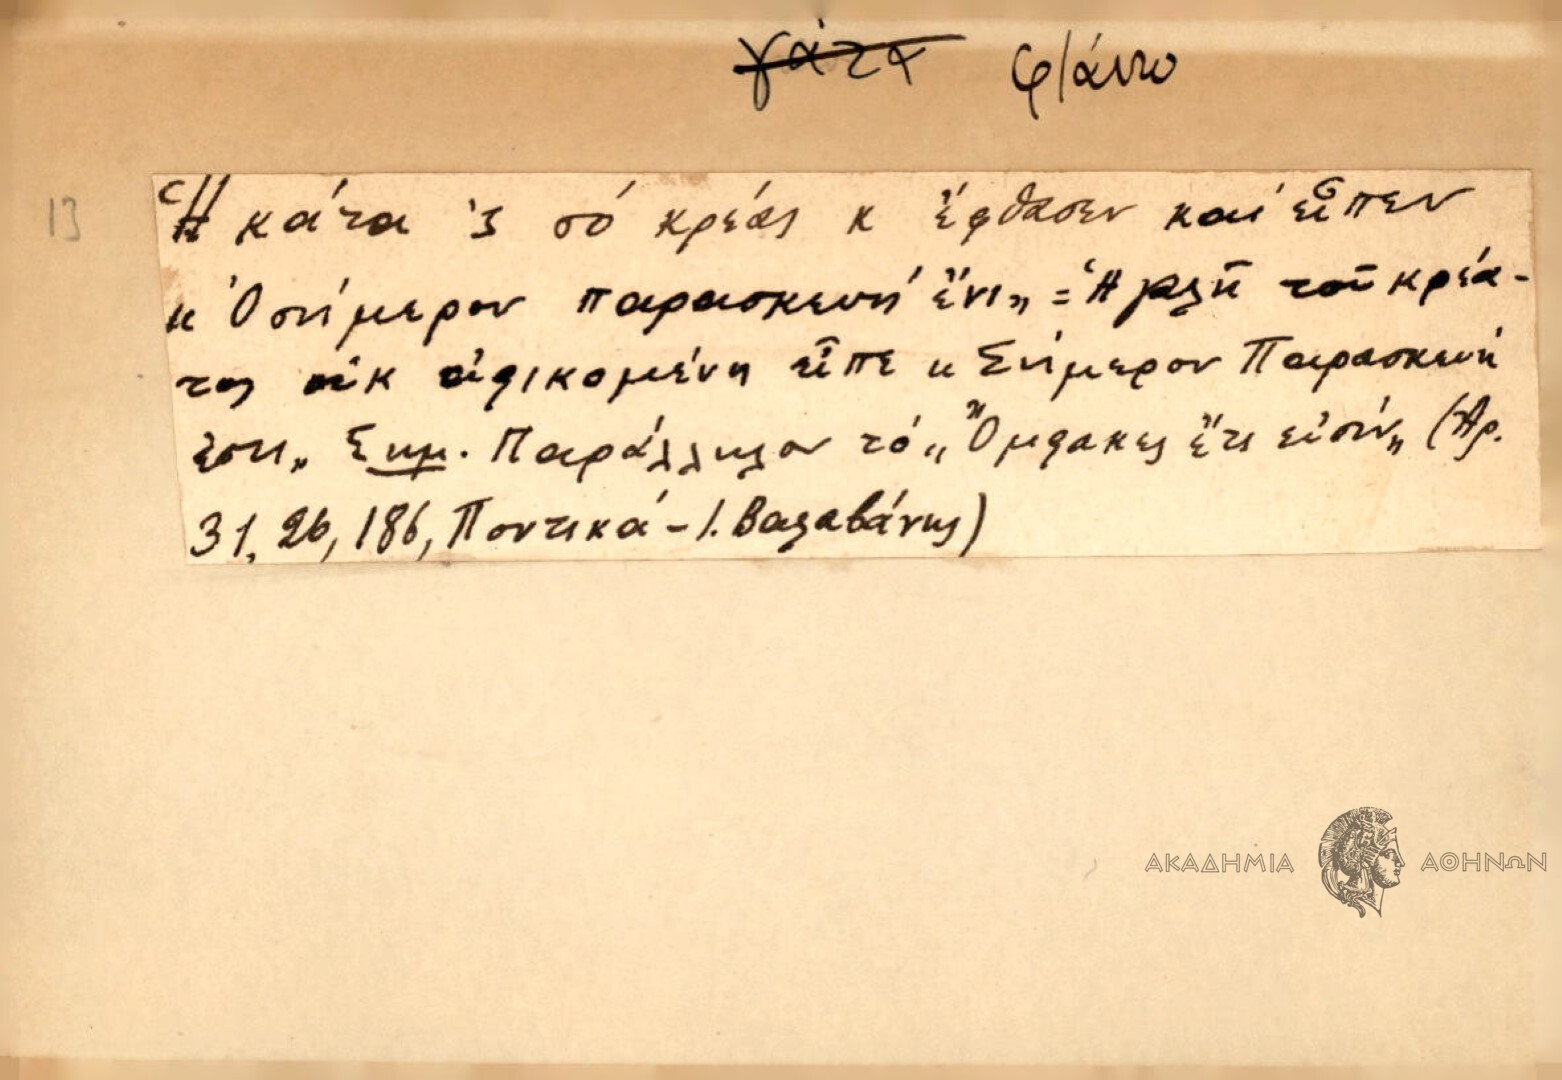 γάτα φτάνω
13
Ἡ κάτα 'ς σό κρέας κ ἔφθασεν καί εἶπεν
"Ὁ σήμερον παρασκευή ἔνι„ = Ἡ γαλῆ τοῦ κρέα-
τος οὐκ ἀφικομένη εἶπε "Σήμερον Παρασκευή
ἐστι„ Σημ. Παράλληλον τό "Ὄμφακες ἔτι εἰσίν„ (Ἀρ.
31, 26, 186, Ποντικά - Ι. Βαλαβάνης)
ΑΚΑΔΗΜΙΑ ΑΘΗΝΩΝ